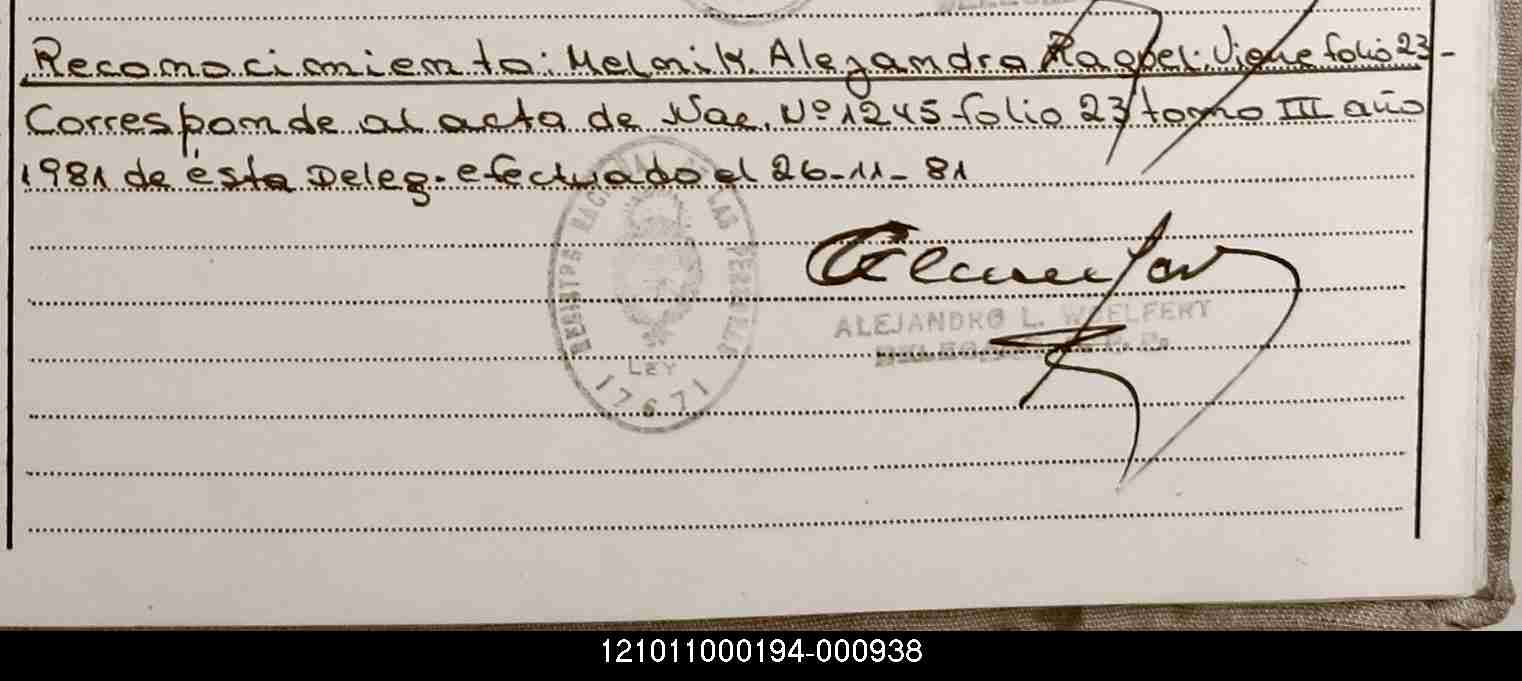 Reconocimiento: Melnik Alejandra Raquel. Viene folio 23-
Corresponde al acta de Nac. Nº 1245 folio 23 tomo III año
1981 de ésta Deleg. efectuado el 26-11-81
REGISTRO NACIONAL DE LAS PERSONAS
LEY
17671
ALEJANDRO L. WOELFERT
121011000194-000938